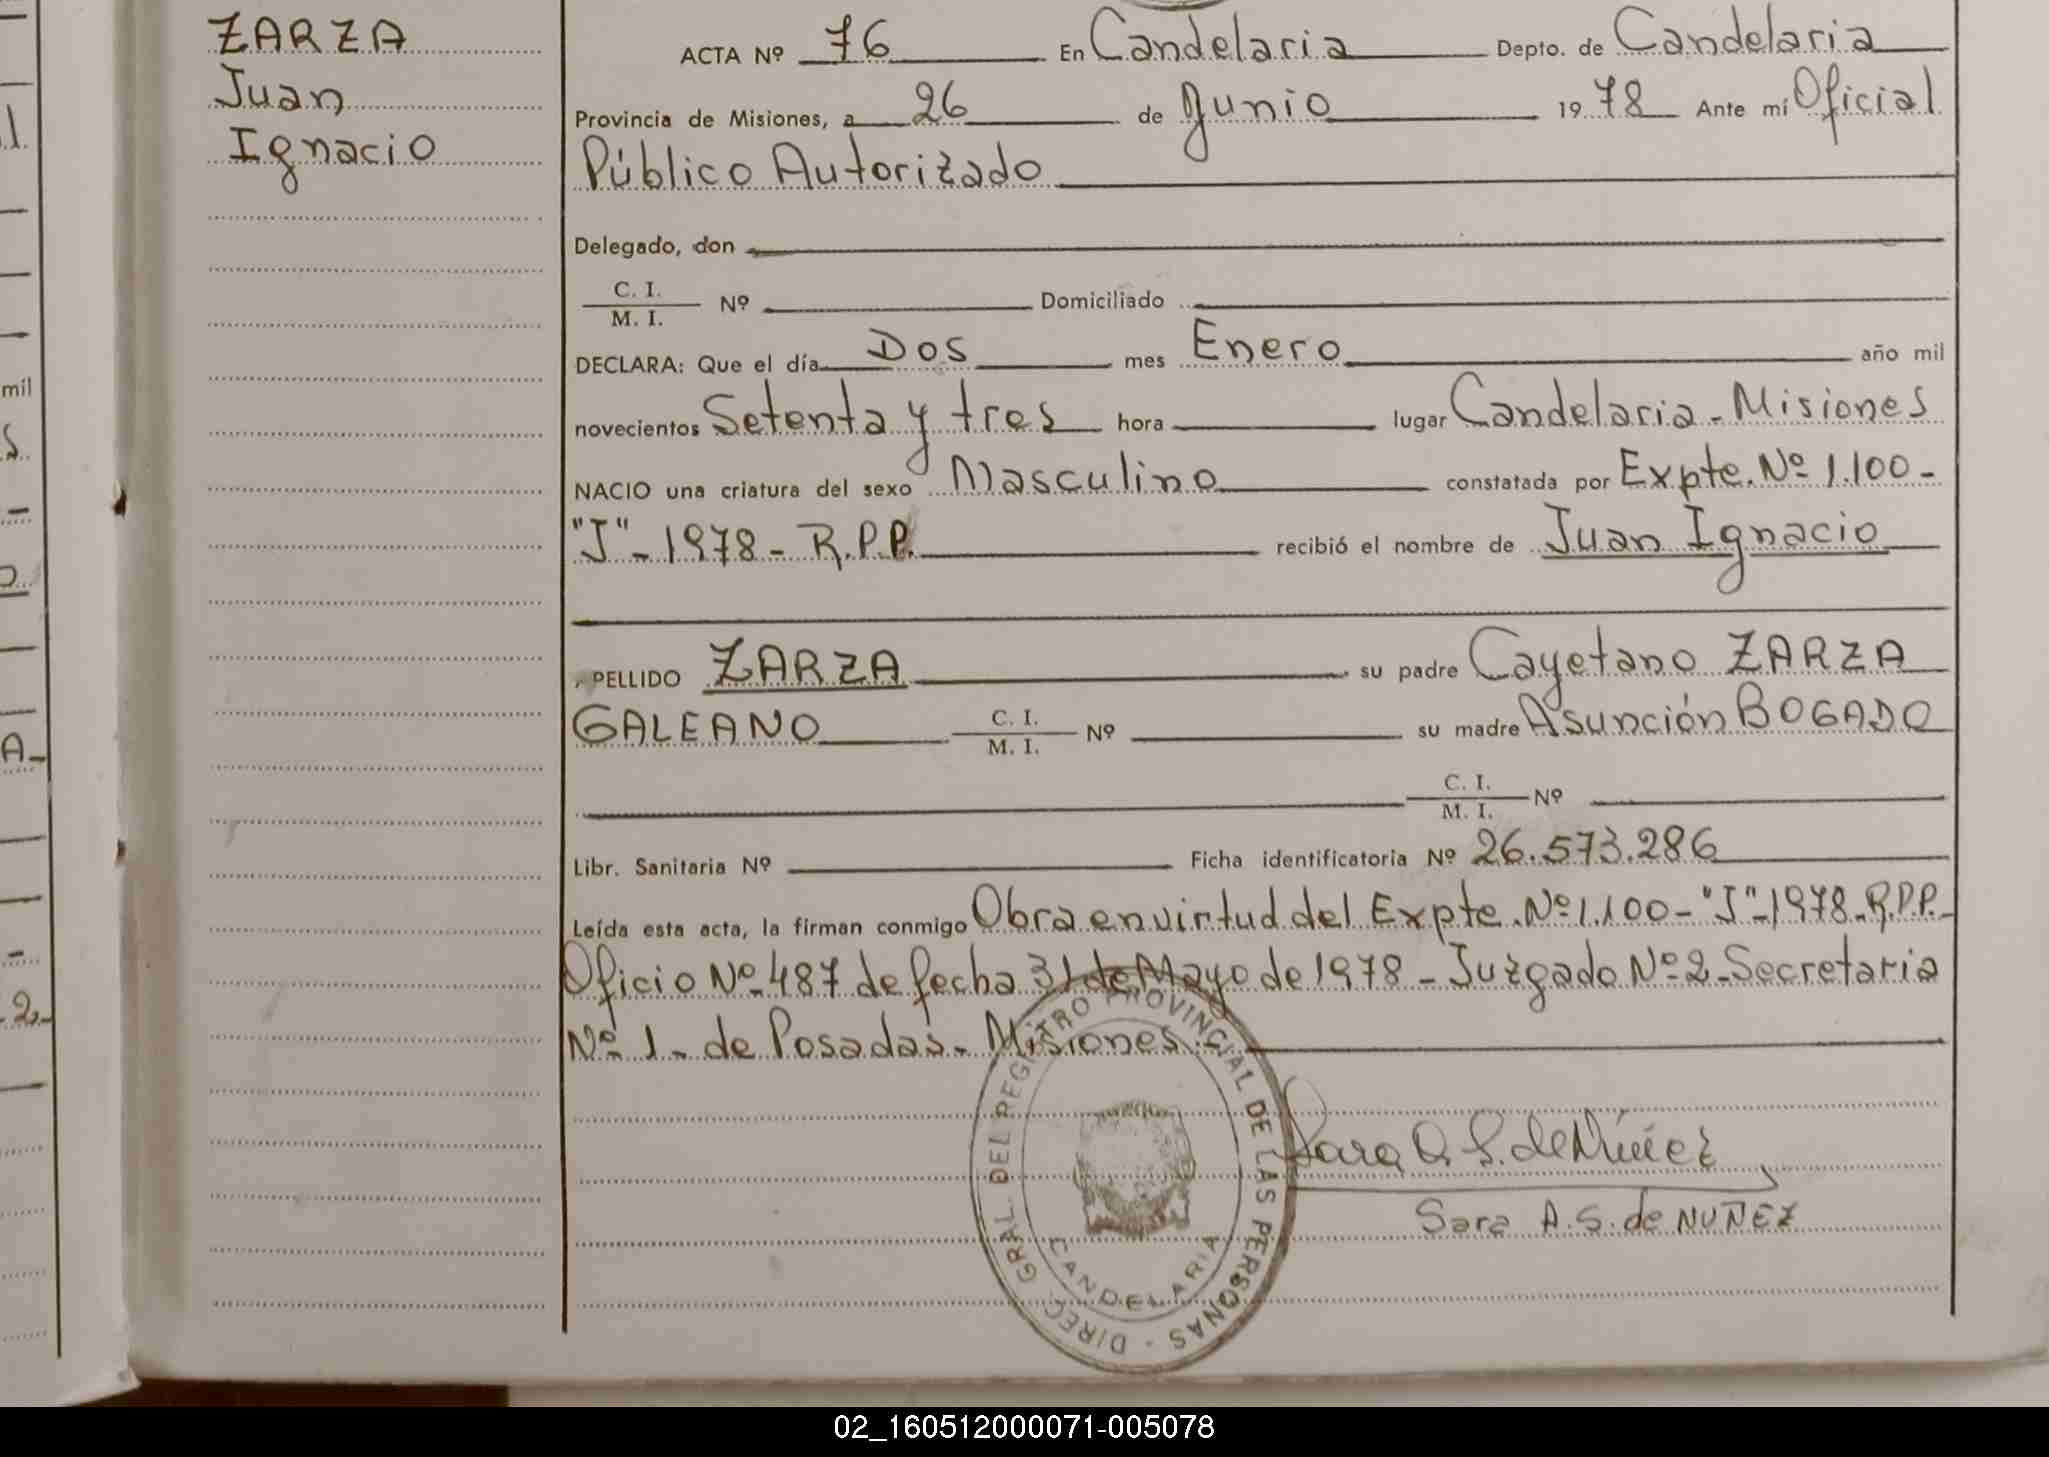 ZARZA
Juan
Ignacio
ACTA Nº 76 En Candelaria Depto. de Candelaria
Provincia de Misiones, a 26 de Junio 1978 Ante mí Oficial
Público Autorizado
Delegado, don
C. I.
M. I. Nº Domiciliado
DECLARA: Que el día Dos mes Enero año mil
novecientos Setenta y tres hora lugar Candelaria - Misiones
NACIO una criatura del sexo Masculino constatada por Expte. Nº 1.100 -
"J" - 1978 - R.P.P. recibió el nombre de Juan Ignacio
PELLIDO ZARZA su padre Cayetano ZARZA
GALEANO C. I. M. I. Nº su madre Asunción BOGADO
C. I. M. I. Nº
Libr. Sanitaria Nº Ficha identificatoria Nº 26.573.286
Leída esta acta, la firman conmigo Obra en virtud del Expte. Nº 1.100 - "J" - 1978 - R.P.P. -
Oficio Nº 487 de fecha 31 de Mayo de 1978 - Juzgado Nº 2 - Secretaria
Nº 1 - de Posadas - Misiones.
DIREC. GRAL. DEL REGISTRO PROVINCIAL DE LAS PERSONAS -
CANDELARIA
Sara A. S. de Núñez
Sara A. S. de NUÑEZ
mil
A -
2 -
02_160512000071-005078